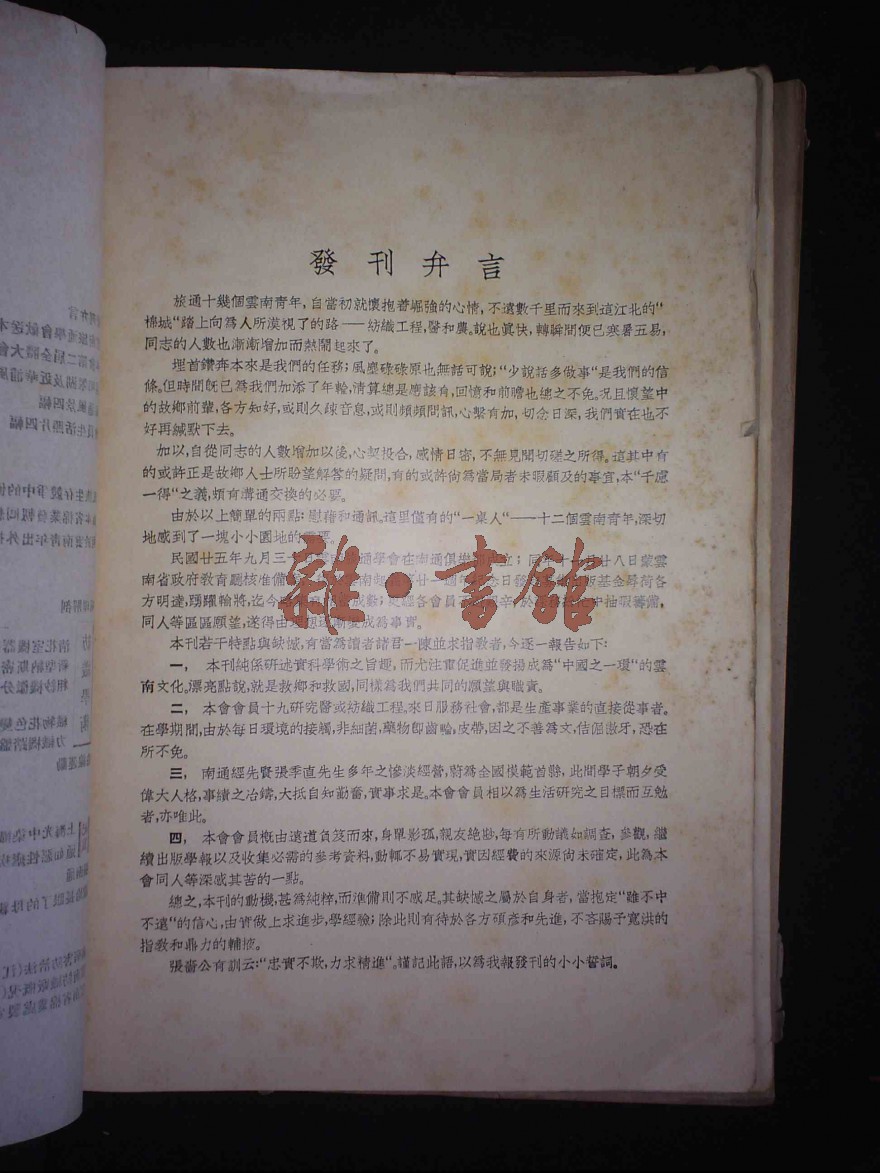 發刊弁言
旅通十幾個雲南青年，自當初就懷抱着崛強的心情，不遠數千里而來到這江北的“
棉城“踏上向爲人所漠視了的路——紡織工程，醫和農。說也眞快，轉瞬間便已寒暑五易，
同志的人數也漸漸增加而熱鬧起來了。
埋首鑽奔本來是我們的任務；風塵碌碌原也無話可說；“少說話多做事“是我們的信
條。但時間旣已爲我們加添了年輪，清算總是應該有，回憶和前瞻也總之不免。况且懷望中
的故鄉前輩，各方知好，或則久疎音息，或則頻頻問訊，心繫有加，切念日深，我們實在也不
好再緘默下去。
加以，自從同志的人數增加以後，心契投合，感情日密，不無見聞切磋之所得。這其中有
的或許正是故鄉人士所盼望解答的疑問，有的或許尙爲當局者未暇顧及的事宜，本“千慮
一得“之義，頗有溝通交換的必要。
由於以上簡單的兩點：慰藉和通訊，這里僅有的“一桌人“——十二個雲南青年，深切
地感到了一塊小小園地的需要。
民國廿五年九月三 通學會在南通俱樂部成立；同年十 月廿八日蒙雲
南省政府教育廳核准備 雲南起義廿一週年紀念日發 版基金辱荷各
方明達，踴躍輸將，迄今 成數；更經各會員 辛 於 中抽暇籌備，
同人等區區願望，遂得由理想逐漸變成爲事實。
本刊若干特點與缺憾，有當爲讀者諸君一陳並求指教者，今逐一報告如下：
一， 本刊純係研述實科學術之旨趣，而尤注重促進並發揚成爲“中國之一環“的雲
南文化。漂亮點說，就是救鄉和救國，同樣爲我們共同的願望與職責。
二， 本會會員十九研究醫或紡織工程。來日服務社會，都是生產事業的直接從事者。
在學期間，由於每日環境的接觸，非細菌，藥物卽齒輪，皮帶，因之不善爲文，佶倔謷牙，恐在
所不免。
三， 南通經先賢張季直先生多年之慘淡經營，蔚爲全國模範首縣，此間學子朝夕受
偉大人格，事績之冶鑄，大抵自知勤奮，實事求是。本會會員相以爲生活研究之目標而互勉
者，亦唯此。
四， 本會會員槪由遠道負笈而來，身單影孤，親友絶跡，每有所動議如調查，參觀，繼
續出版學報以及收集必需的參考資料，動輒不易實現，實因經費的來源尙未確定，此爲本
會同人等深感其苦的一點。
總之，本刊的動機，甚爲純粹，而準備則不感足。其缺憾之屬於自身者，當抱定“雖不中
不遠“的信心，由實做上求進步，學經驗；除此則有待於各方碩彥和先進，不吝賜予寬洪的
指教和鼎力的輔掖。
張嗇公有訓云：“忠實不欺，力求精進“。謹記此語，以爲我報發刊的小小誓詞。
雜·書館